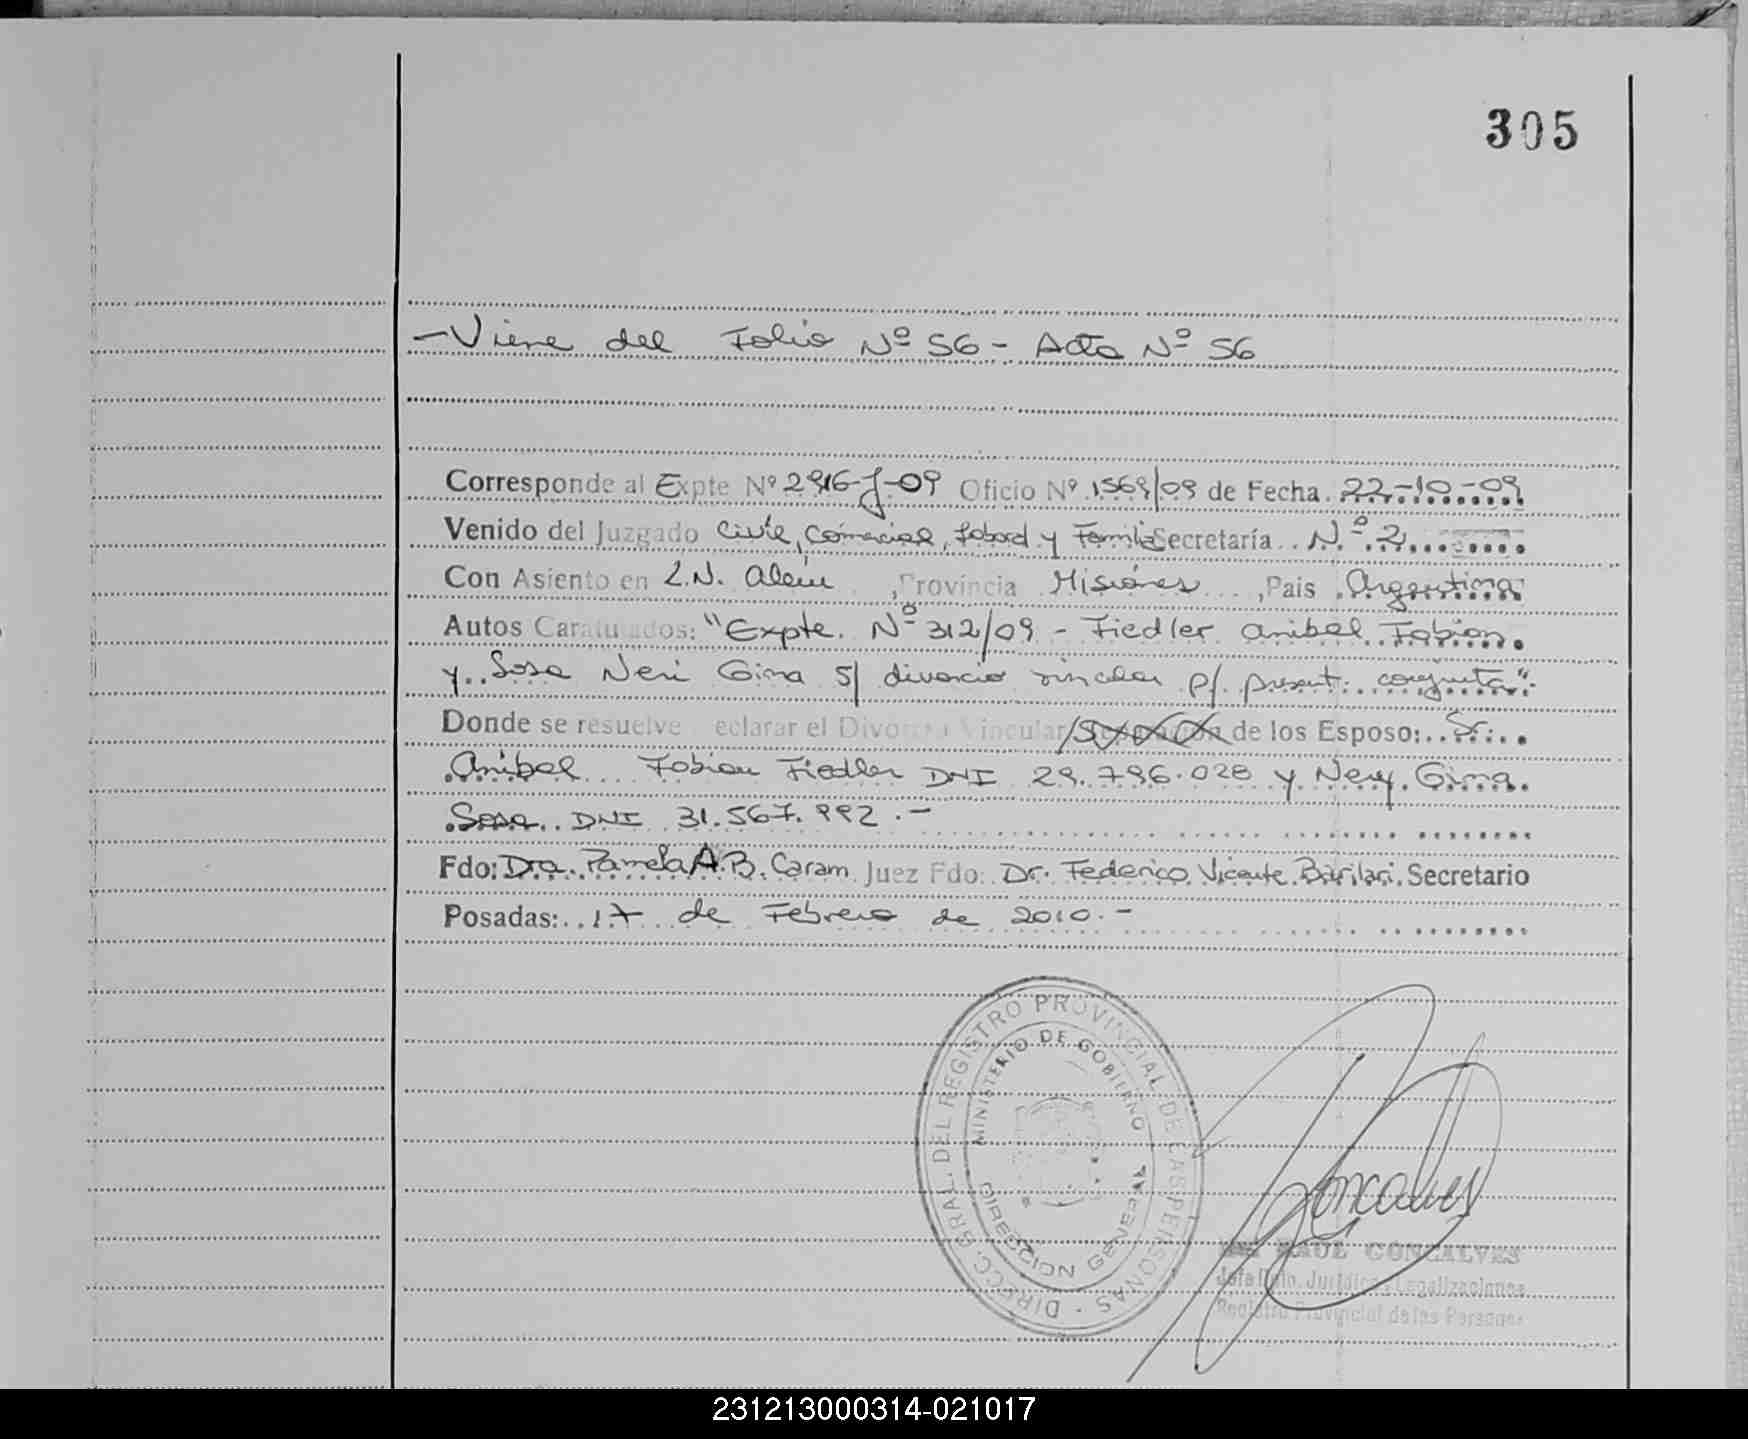 305
- Viene del Folio Nº 56 - Acta Nº 56
Corresponde al Expte Nº 2916-J-09 Oficio Nº 1569/09 de Fecha 22-10-09
Venido del Juzgado Civil, Comercial, Laboral y Familia Secretaría Nº 2
Con Asiento en L.N. Alem, Provincia Misiones, Pais Argentina
Autos Caratulados: "Expte. Nº 312/09 - Fiedler Anibal Fabian
y Sosa Neri Gina S/ divorcio vincular p/ present. conjunta".
Donde se resuelve declarar el Divorcio Vincular/Separación de los Esposo: Sr.
Anibal Fabian Fiedler DNI 29.796.028 y Nery Gina
Sosa DNI 31.567.992.-
Fdo: Dra. Pamela A.B. Caram Juez Fdo: Dr. Federico Vicente Barilari Secretario
Posadas: 17 de Febrero de 2010.-
DIRECC. GRAL. DEL REGISTRO PROVINCIAL DE LAS PERSONAS -
MINISTERIO DE GOBIERNO
DIRECCION GENERAL
Goncalves
RAUL GONCALVES
Jefe Dpto. Jurídico Legalizaciones
Registro Provincial de las Personas
231213000314-021017